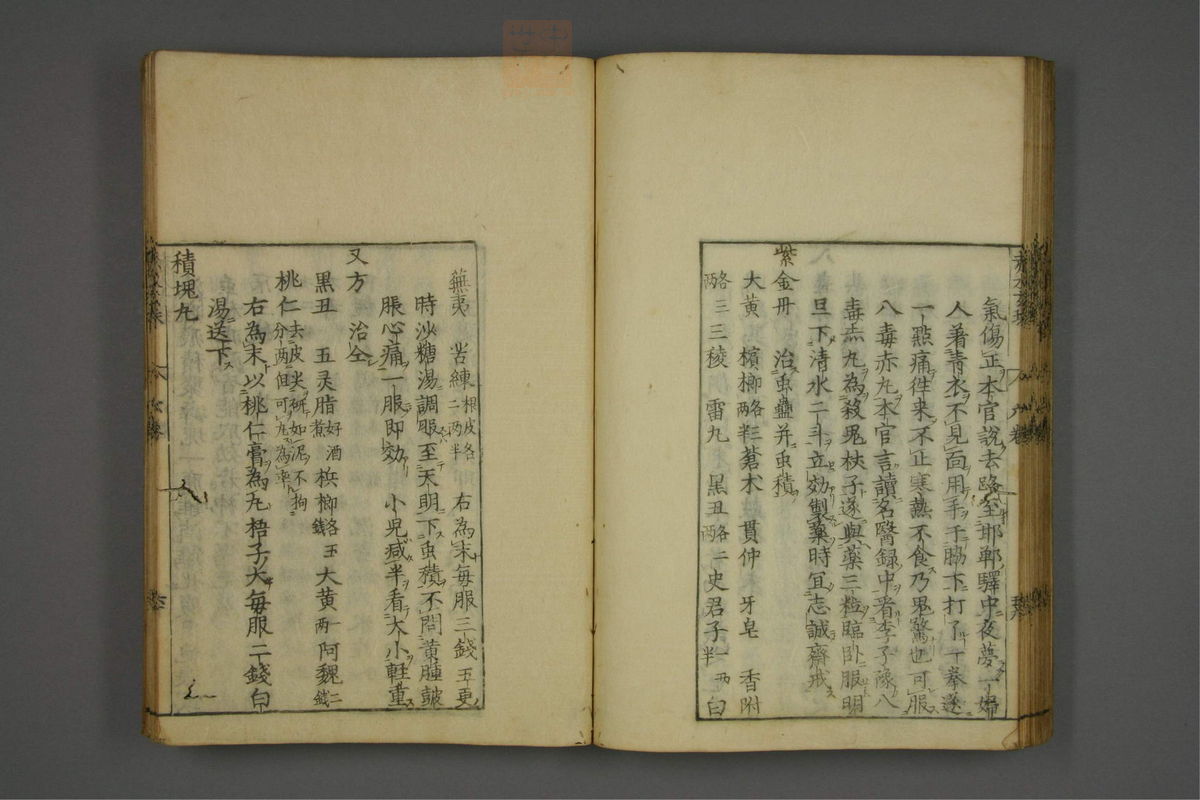 氣傷正本官說去路至邯鄲驛中夜夢一婦
人着青衣不見面用手于脇下打了一拳遂
一點痛徃来不止寒熱不食乃鬼擊也可服
八毒赤丸本官言讀名醫録中看李子豫八
毒赤丸為殺鬼杖子遂與藥三粒臨卧服明
旦下清水二斗立効製藥時冝志誠齋戒
紫金丹 治虫蠱并虫積
大黄 檳榔各三两半 蒼木 貫仲 牙皂 香附
各三两 三稜 雷丸 黒丑各二两 史君子一两半 白
蕪夷 苦練根皮各二两半 右為末每服三錢五更
時沙糖湯調服至天明下虫積不問黄腫皷
脹心痛一服即効 小児减半看大小軽重
又方 治仝
黒丑 五灵脂好酒煮 梹榔各五錢 大黄一两 阿魏二錢
桃仁去皮尖研如泥不拘分两但可丸為率
右為末以桃仁膏為丸梧子大每服二錢白
湯送下
積塊丸